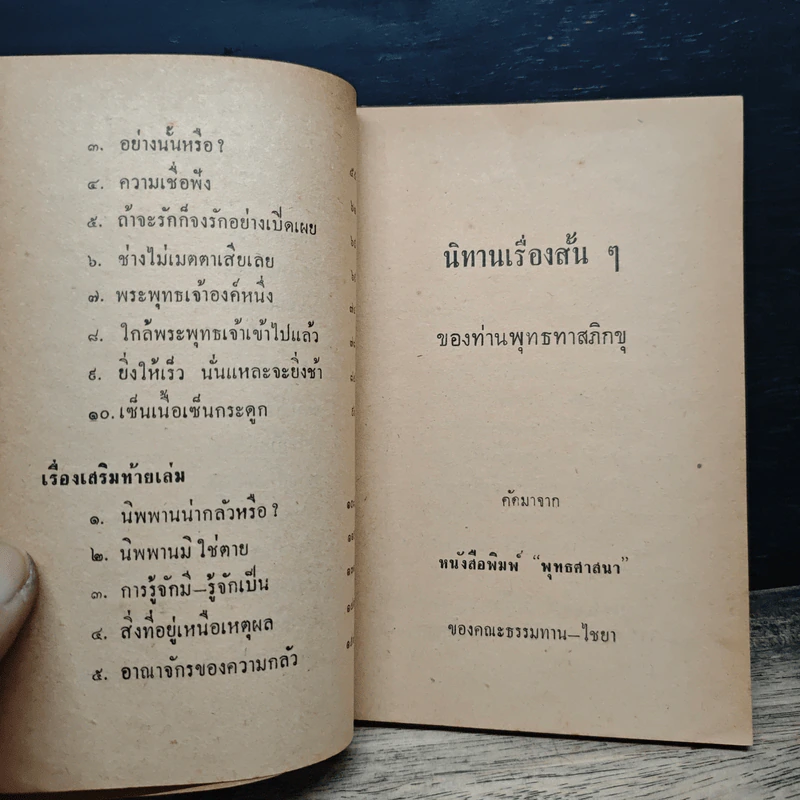 ๓. อย่างนั้นหรือ ?
๔. ความเชื่อฟัง
๕. ถ้าจะรักก็จงรักอย่างเปิดเผย
๖. ช่างไม่เมตตาเสียเลย
๗. พระพุทธเจ้าองค์หนึ่ง
๘. ใกล้พระพุทธเจ้าเข้าไปแล้ว
๙. ยิ่งให้เร็ว นั่นแหละจะยิ่งช้า
๑๐. เซ็นเนื้อเซ็นกระดูก
เรื่องเสริมท้ายเล่ม
๑. นิพพานน่ากลัวหรือ ?
๒. นิพพานมิใช่ตาย
๓. การรู้จักมี–รู้จักเป็น
๔. สิ่งที่อยู่เหนือเหตุผล
๕. อาณาจักรของความกลัว
นิทานเรื่องสั้น ๆ
ของท่านพุทธทาสภิกขุ
คัดมาจาก
หนังสือพิมพ์ “พุทธศาสนา”
ของคณะธรรมทาน–ไชยา